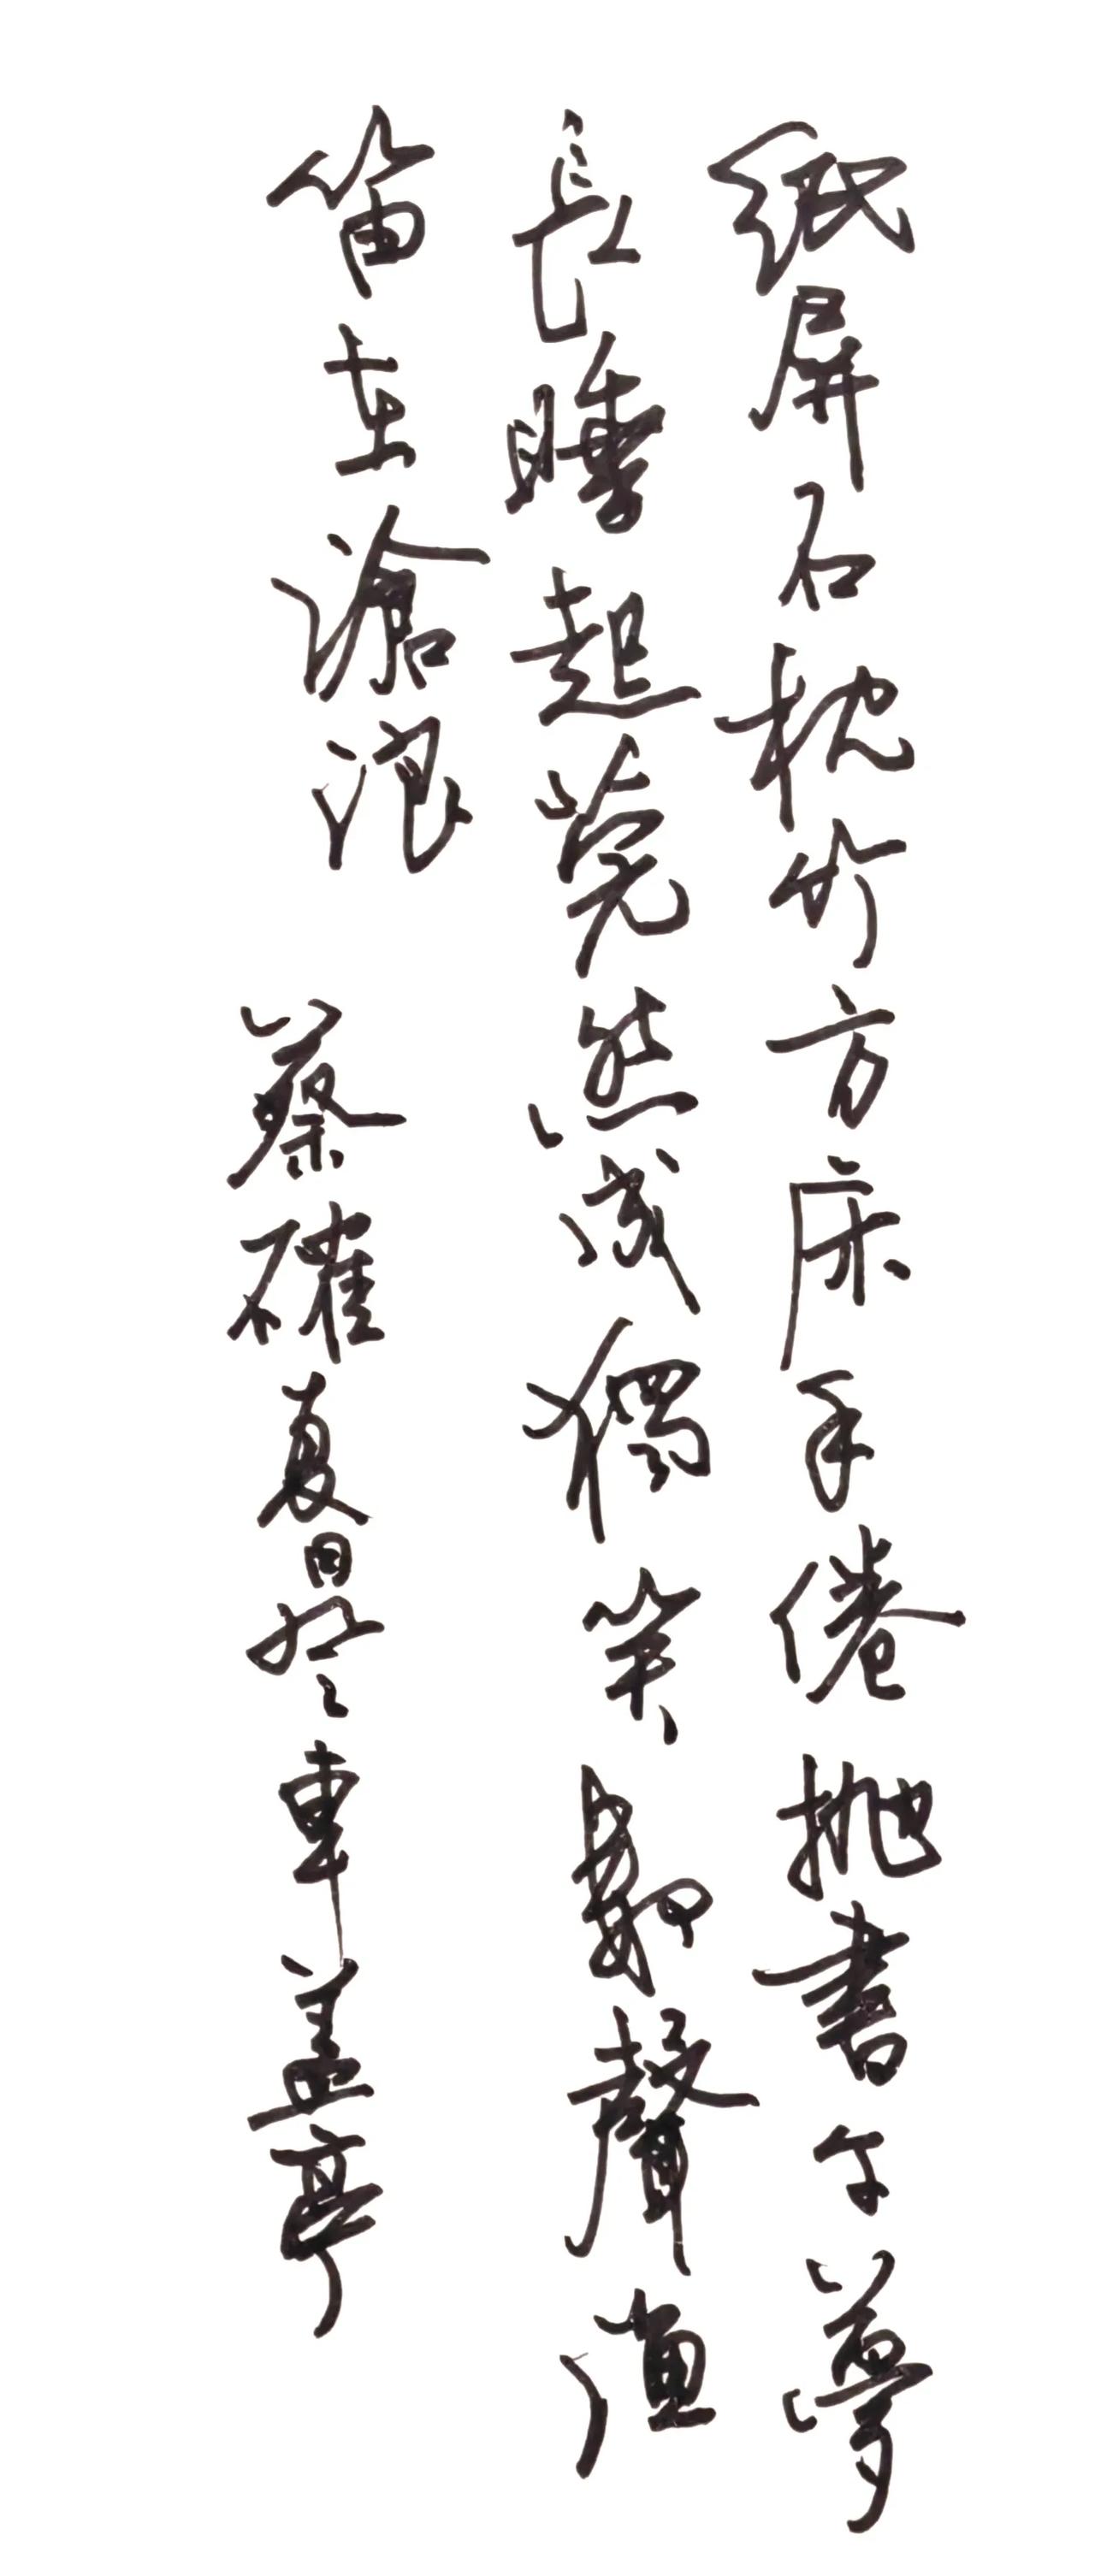 紙屏石枕竹方床手倦拋書午夢
長睡起莞然成獨笑數聲漁
笛在滄浪 蔡確夏日登車盖亭